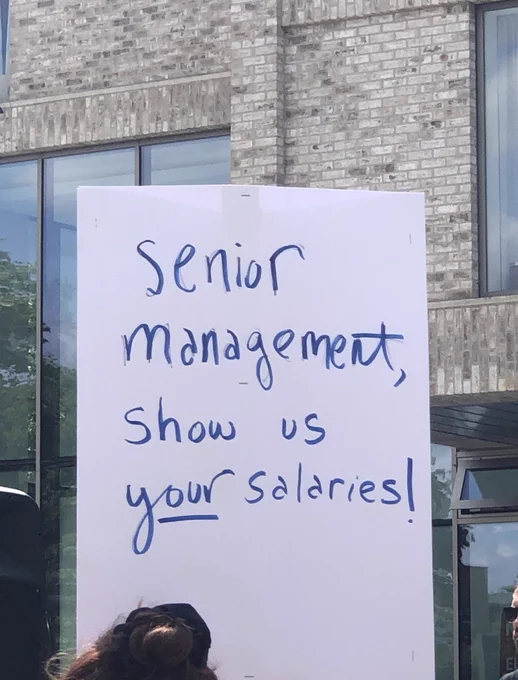 Senior
management,
show us
your salaries!